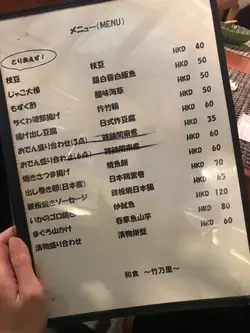 メニュー(MENU)
とりあえず!
枝豆 枝豆 HKD 40
じゃこ大根 蘿白容白飯魚 HKD 50
もずく酢 醋味海草 HKD 50
ちくわ磯部揚げ 炸竹輪 HKD 60
揚げ出し豆腐 日式炸豆腐 HKD 60
おでん盛り合わせ(3点) 雑錦関東煮 HKD 35
おでん盛り合わせ(5点) 雑錦関東煮 HKD 60
焼きさつま揚げ 焼魚餅 HKD 50
出し巻き卵(日本産) 日本鶏蛋卷 HKD 65
鉄板焼きソーセージ 鉄板焼日本腸 HKD 120
いかのゴロ焼き 炒魷魚 HKD 80
まぐろ山かけ 吞拿魚山芋 HKD 60
漬物盛り合わせ 漬物拼盤
和食 ～竹乃里～